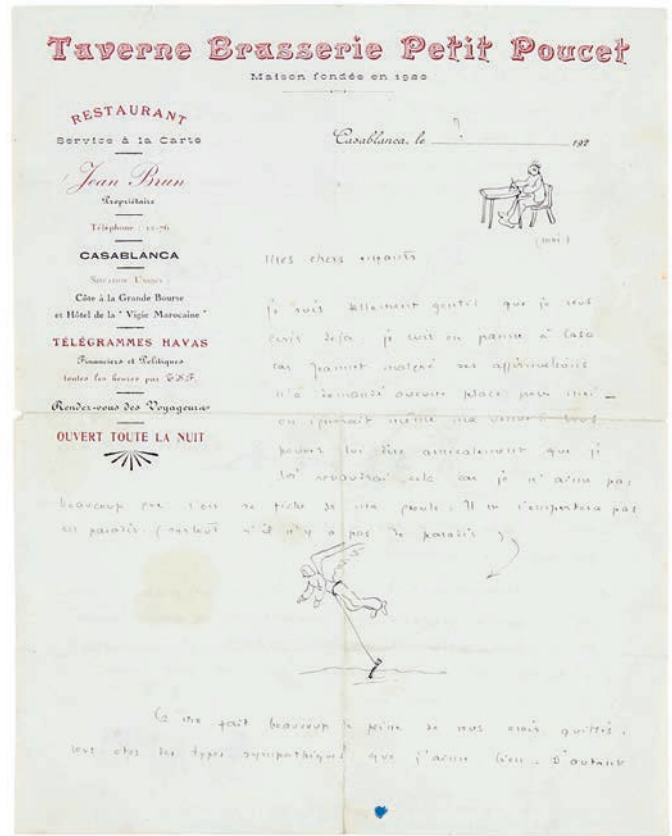 Taverne Brasserie Petit Poucet
Maison fondée en 1920
RESTAURANT
Service à la Carte
Jean Brun
Propriétaire
Téléphone : 12-76
CASABLANCA
Situation Unique :
Côte à la Grande Bourse
et Hôtel de la "Vigie Marocaine"
TÉLÉGRAMMES HAVAS
Financiers et Politiques
toutes les heures par T.S.F.
Rendez-vous des Voyageurs
OUVERT TOUTE LA NUIT
Casablanca, le ? 192
(moi)
Mes chers enfants
je suis tellement gentil que je vous
écris déjà. je suis en panne à Casa
car malgré ses affirmations
n'a demandé aucune place pour moi _
on ignorait même ma venue. Vous
pouvez lui dire amicalement que je
lui revaudrai cela car je n'aime pas
beaucoup que l'on se fiche de ma . Il ne l'emportera pas
en paradis. (surtout s'il n'y a pas de paradis)
Ça me fait beaucoup de peine de vous avoir quittés.
vous êtes des types sympathiques que j'aime bien. D'autant